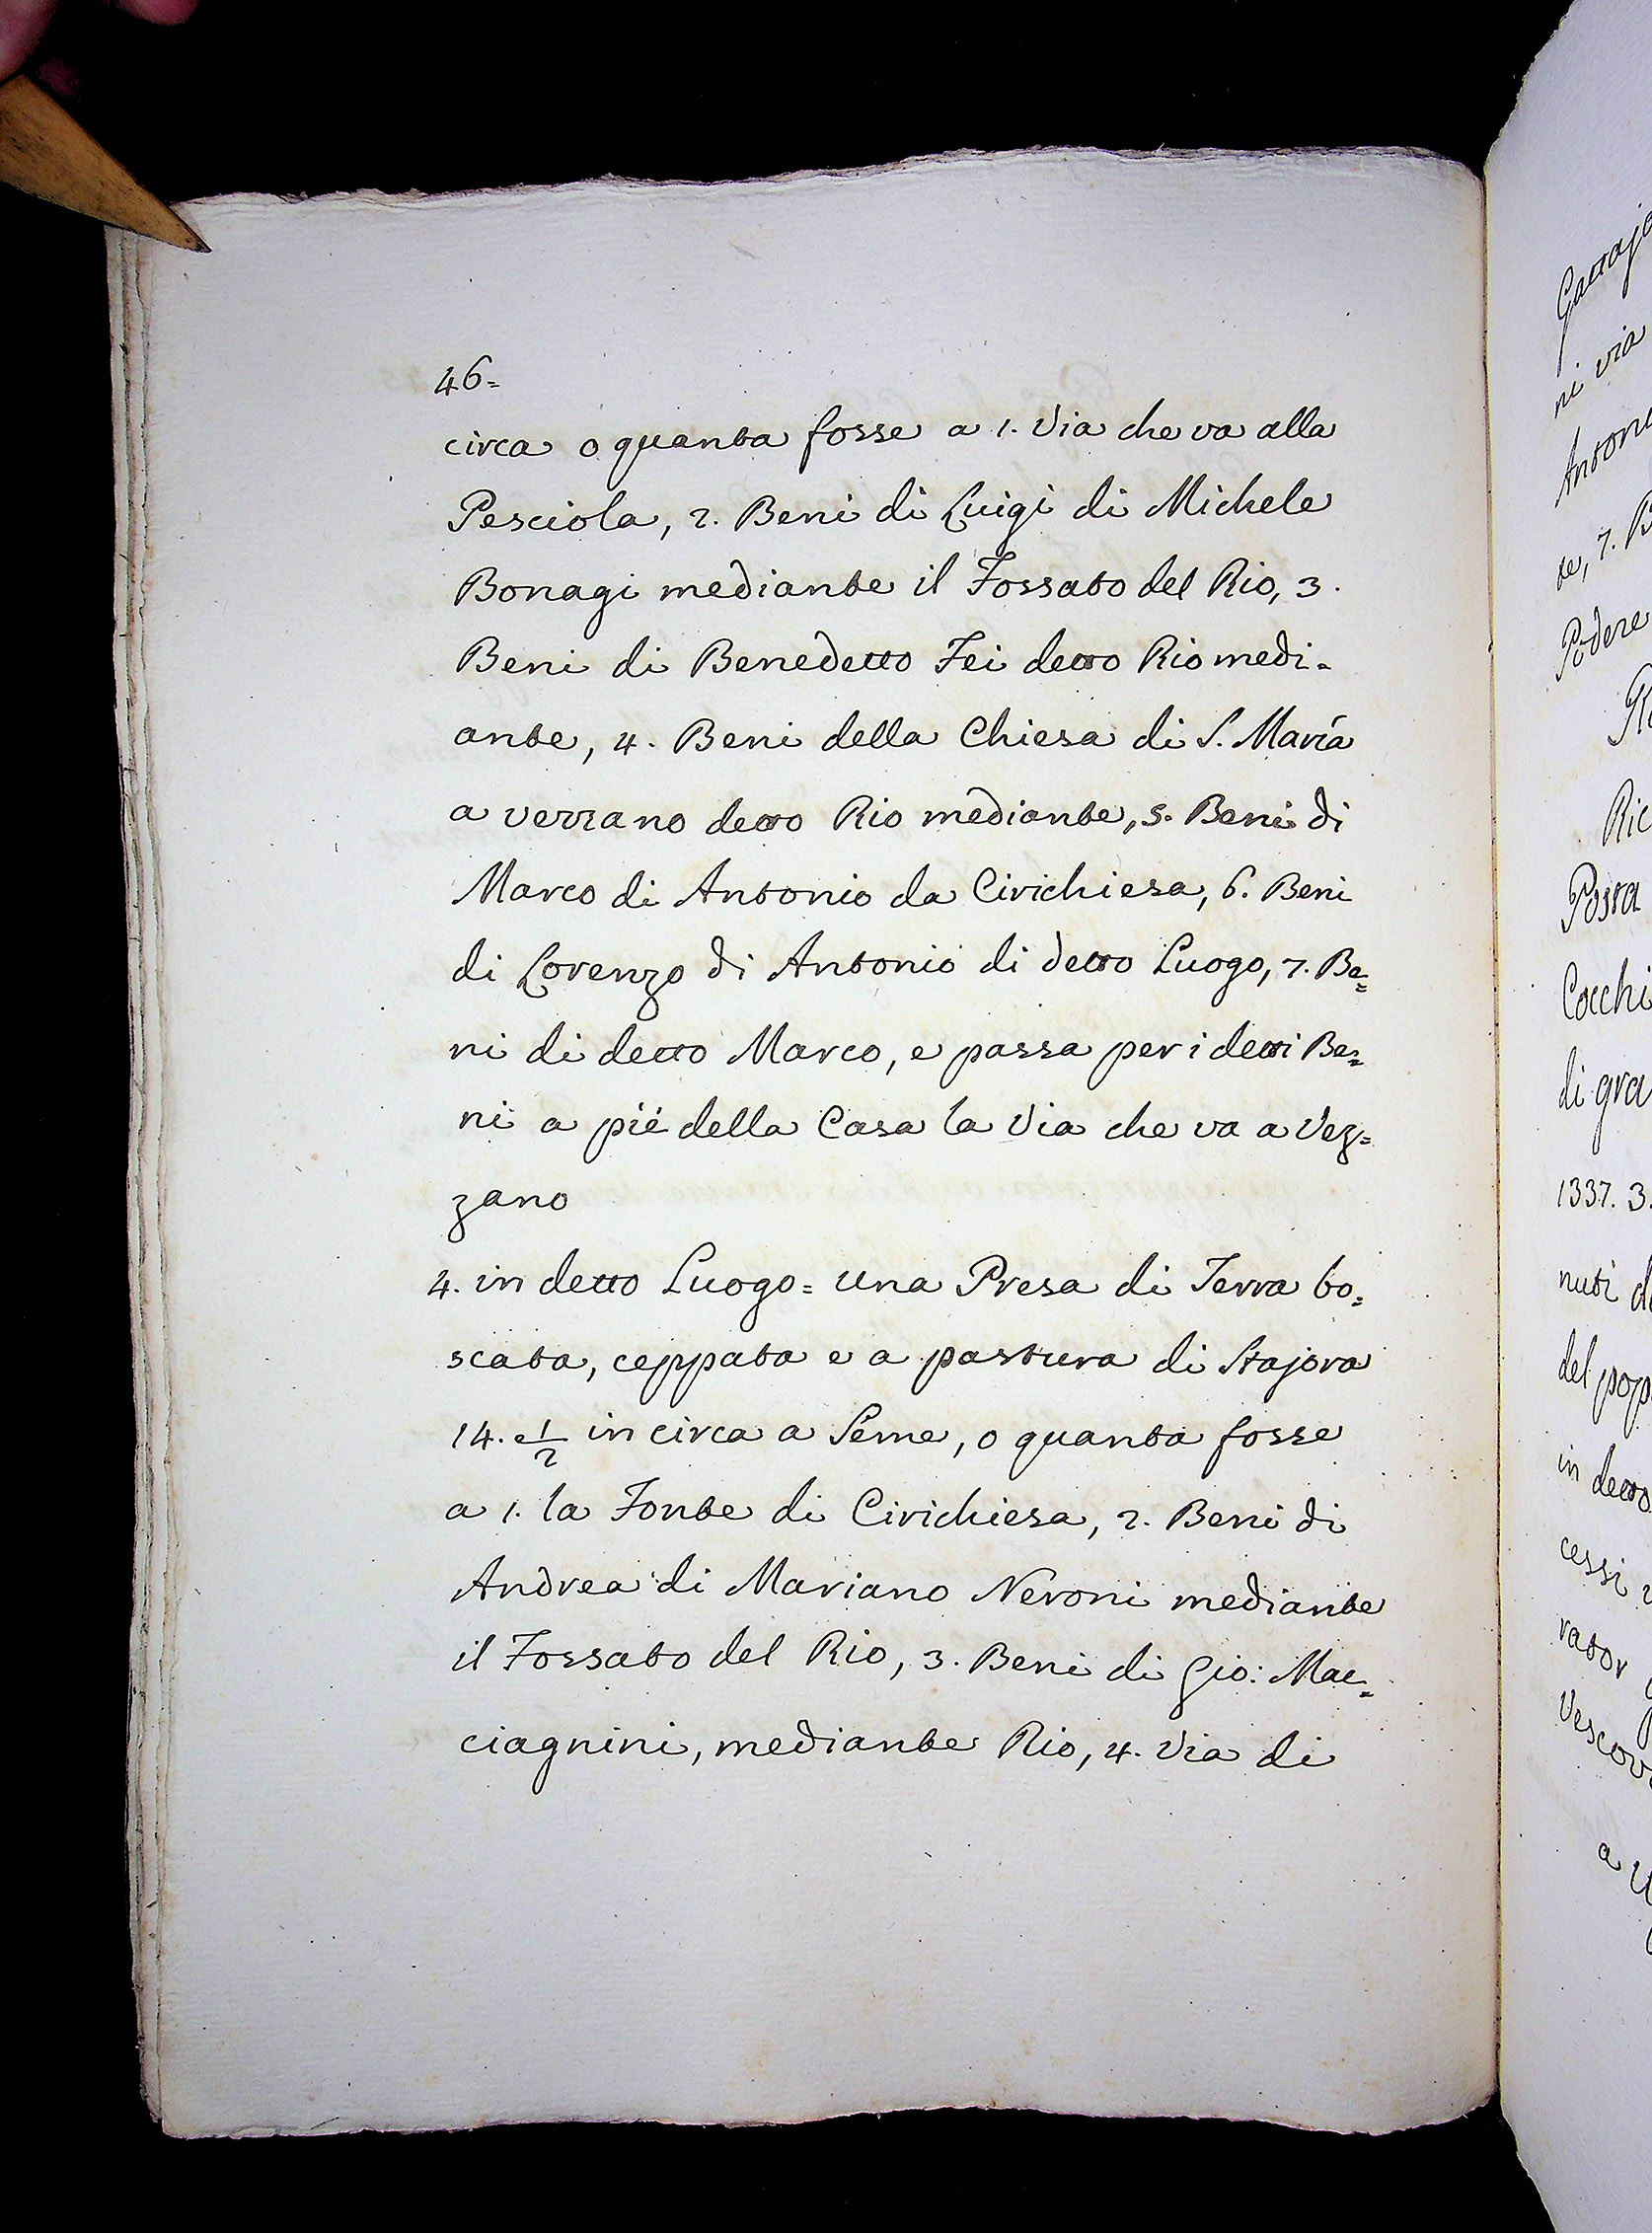 46=
circa o quanta fosse a 1. Via che va alla
Pesciola, 2. Beni di Luigi di Michele
Bonagi mediante il Fossato del Rio, 3.
Beni di Benedetto Fei detto Rio medi=
ante, 4. Beni della Chiesa di S. Maria
a verzano detto Rio mediante, 5. Beni di
Marco di Antonio da Cirichiesa, 6. Beni
di Lorenzo di Antonio di detto Luogo, 7. Be=
ni di detto Marco, e passa per i detti Be=
ni a pié della Casa la Via che va a Vez=
zano
4. in detto Luogo = una Presa di Terra bo=
scata, ceppata e a pastura di Stajora
14. e 1/2 in circa a Seme, o quanta fosse
a 1. la Fonte di Cirichiesa, 2. Beni di
Andrea di Mariano Neroni mediante
il Fossato del Rio, 3. Beni di Gio: Mac=
ciagnini, mediante Rio, 4. Via di
ni via
Podere
Posta
Cocchi
di gra
1337. 3.
nuti
del pop
in detto
cessi
rator
Vescov